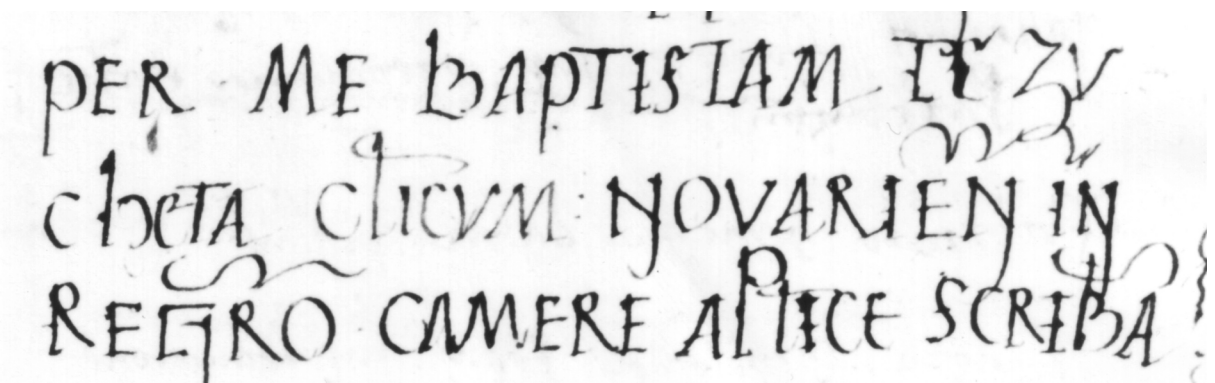 PER ME BAPTISTAM
CHETA CLICUM NOVARIEN IN
REGRO CAMERE APLICE SCRIBA